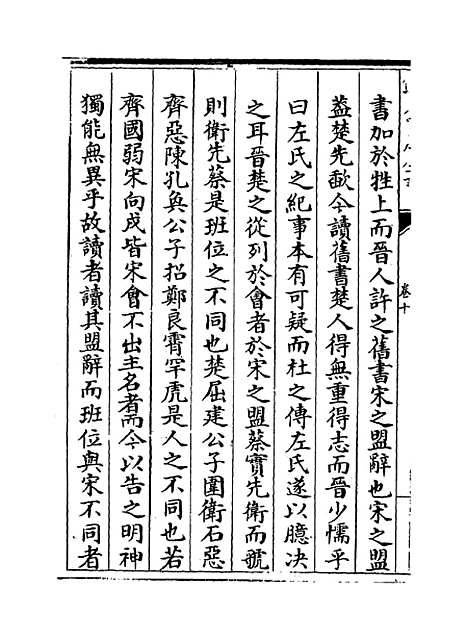 卷十
書加於牲上而晉人許之舊書宋之盟辭也宋之盟
葢楚先歃今讀舊書楚人得無重得志而晉少懦乎
曰左氏之紀事本有可疑而杜之傳左氏遂以臆决
之耳晉楚之從列於會者於宋之盟蔡實先衛而虢
則衛先蔡是班位之不同也楚屈建公子圍衛石惡
齊惡陳孔奐公子招鄭良霄罕虎是人之不同也若
齊國弱宋向戌皆宋會不出主名者而今以告之明神
獨能無異乎故讀者讀其盟辭而班位與宋不同者